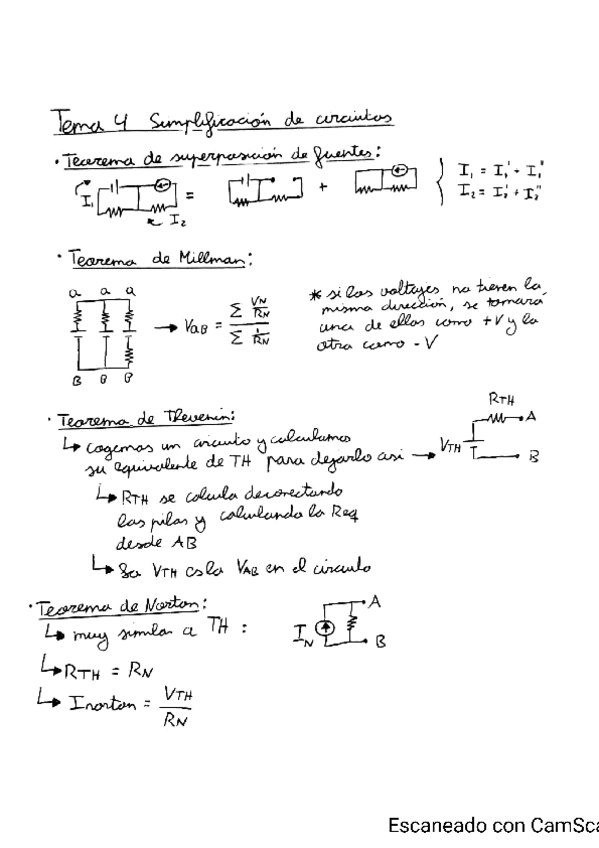 Tema 4 Simplificación de circuitos
· Teorema de superposición de fuentes:
I₁ = + I₁ = I₁' + I₁''
I₂ I₂ = I₂' + I₂''
· Teorema de Millman:
a a a
B B B
→ VAB = Σ VN/RN / Σ 1/RN
* si los voltajes no tienen la
misma dirección, se tomará
una de ellas como +V y la
otra como -V
· Teorema de Thevenin:
↳ cogemos un circuito y calculamos
su equivalente de TH para dejarlo asi →
RTH
A
VTH
B
↳ RTH se calcula desconectando
las pilas y calculando la Req
desde AB
↳ La VTH es la VAB en el circuito
· Teorema de Norton:
↳ muy similar a TH :
IN
A
B
↳ RTH = RN
↳ Inorton = VTH/RN
Escaneado con CamSca